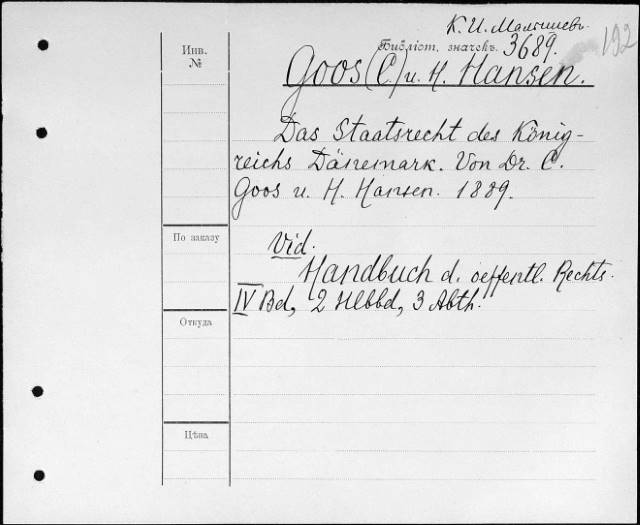 К. И. Малышевъ.
Инв.
№
Библіот. значекъ. 3689.
192
Goos (C.) u. H. Hansen.
Das Staatsrecht des König-
reichs Dänemark. Von Dr. C.
Goos u. H. Hansen. 1889.
По заказу
Vid.
Handbuch d. oeffentl. Rechts.
IV Bd, 2 Hlbbd, 3 Abth.
Откуда
Цѣна